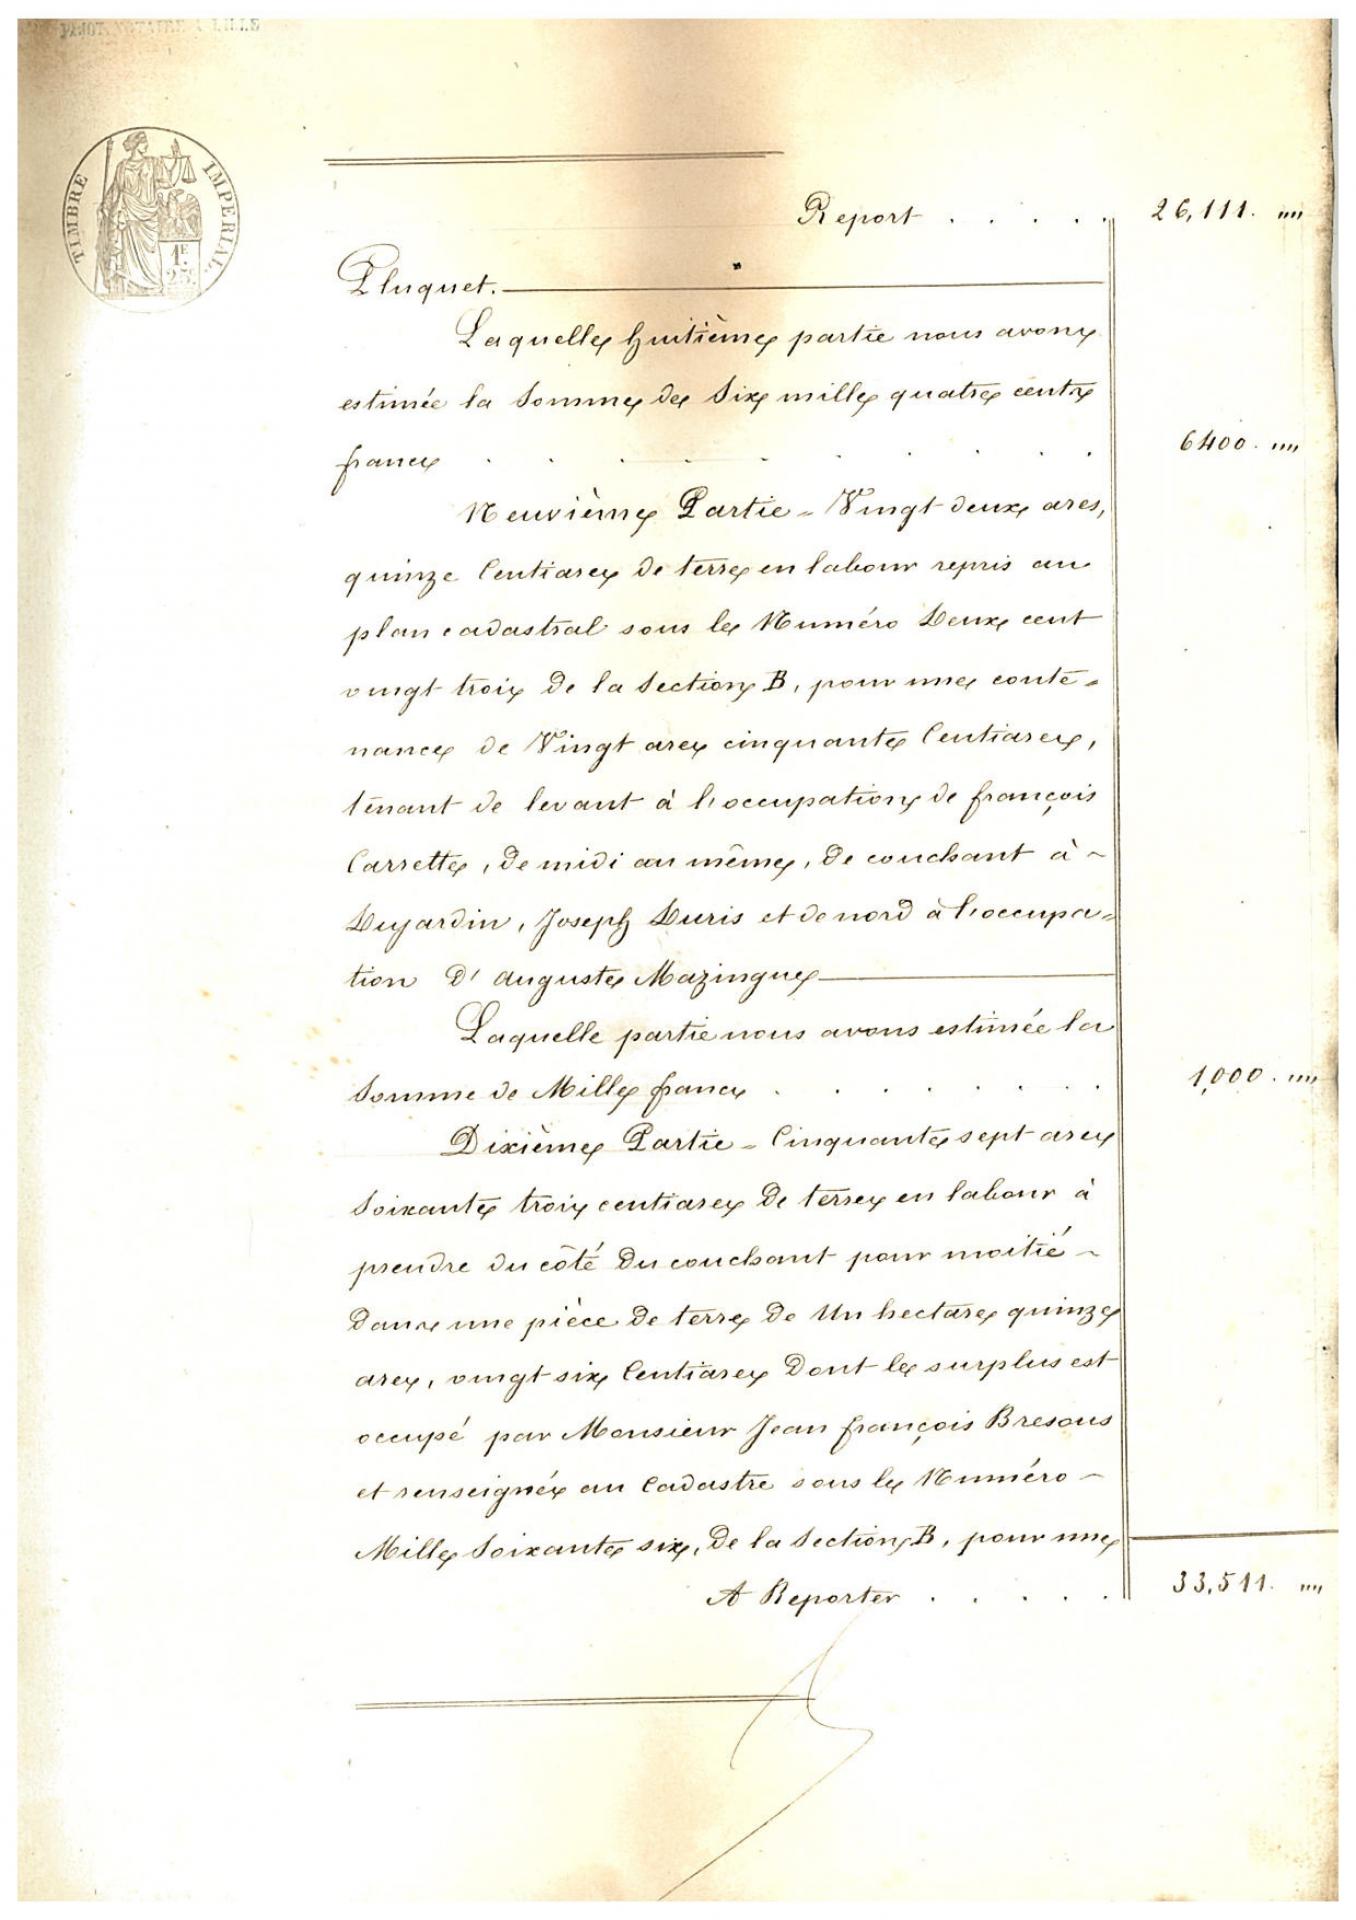 PAJOT, NOTAIRE A LILLE
TIMBRE IMPERIAL.
1F.
25c
Report . . . . . 26,111. """
Pluquet.
Laquelle huitième partie nous avons
estimée la Somme de Six mille quatre cents
francs . . . . . . . . . 6400. """
Neuvième Partie - Vingt deux ares,
quinze Centiares de terre en labour repris au
plan cadastral sous le Numéro Deux cent
vingt trois de la Section B, pour une conte=
nance de Vingt ares cinquante Centiares,
tenant de levant à l'occupation de françois
Carrette, de midi au même, de couchant à -
Dujardin, Joseph Duris et de nord à l'occupa=
tion d'auguste Mazingue
Laquelle partie nous avons estimée la
Somme de Mille francs . . . . . . . 1,000. """
Dixième Partie - Cinquante sept ares
Soixante trois centiares de terre en labour à
prendre du côté du couchant pour moitié -
Dans une pièce de terre de Un hectare quinze
ares, vingt six Centiares Dont le surplus est
occupé par Monsieur Jean françois Bresous
et renseignée au Cadastre sous le Numéro -
Mille Soixante six, de la Section B, pour une
A Reporter . . . . . 33,511. """